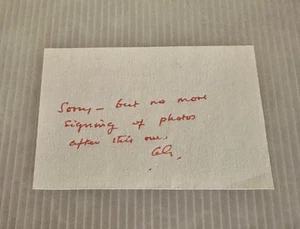 Sorry — but no more
signing of photos
after this one.